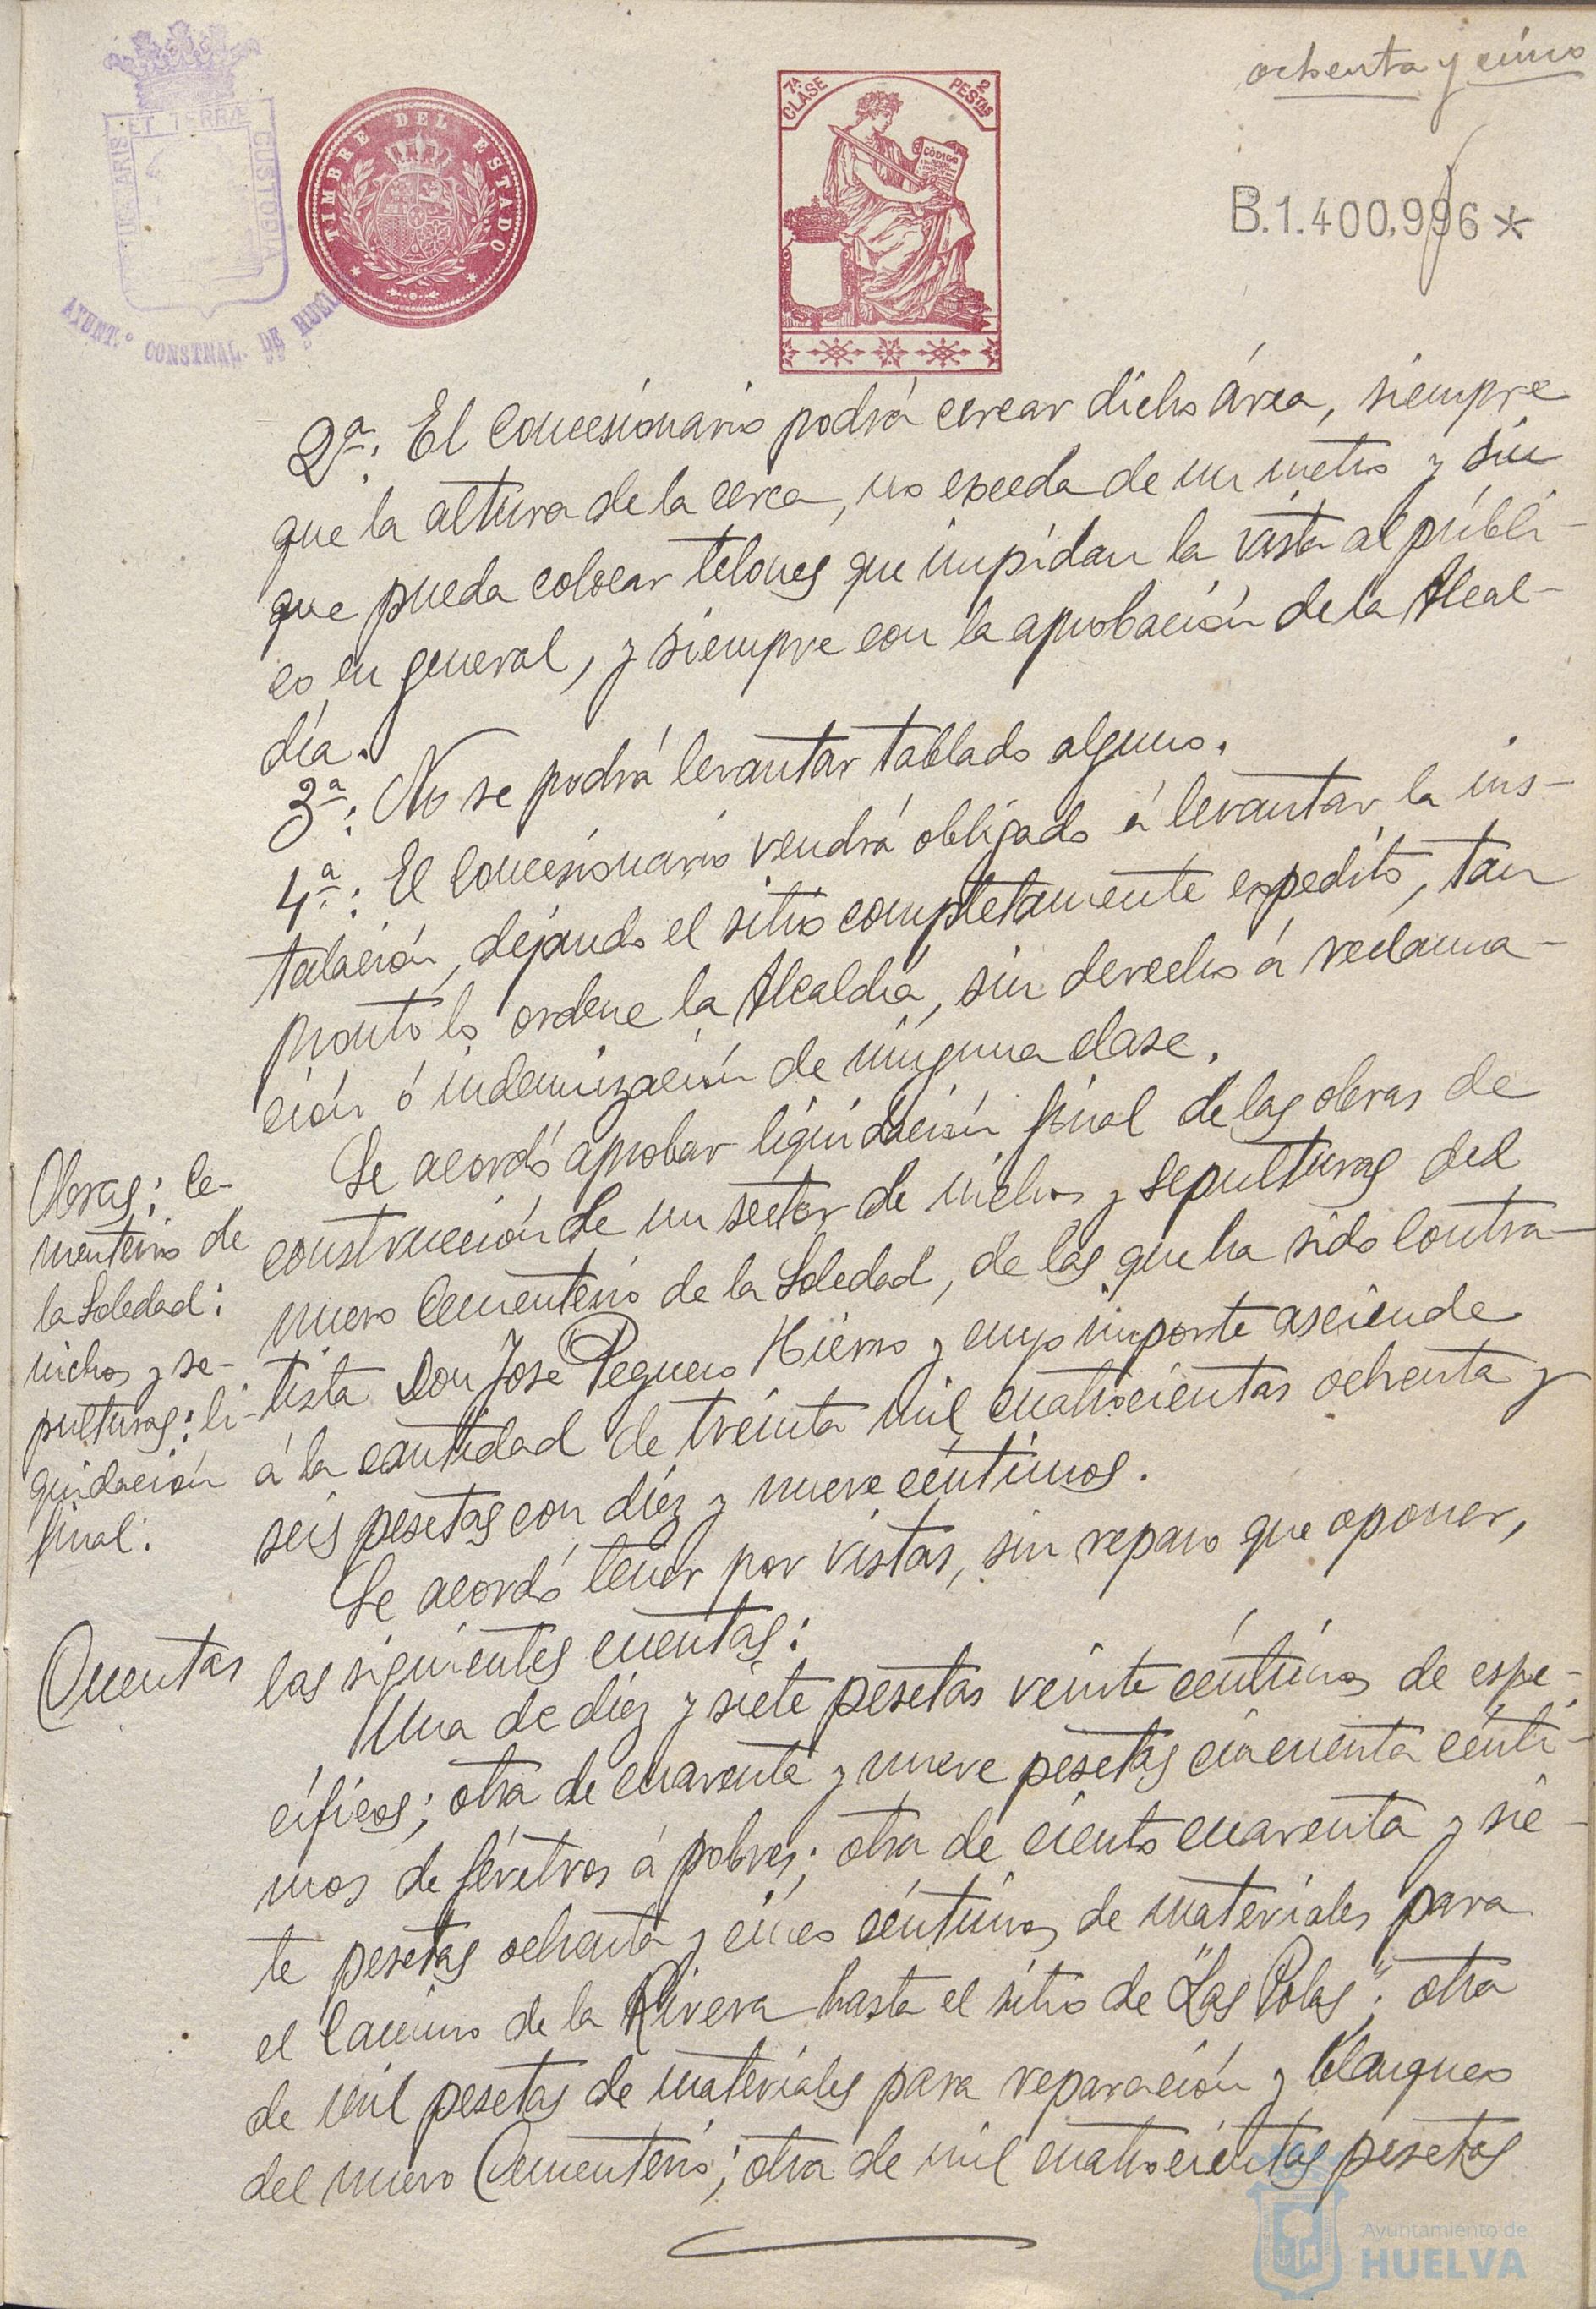 ochenta y cinco
7ª CLASE
2 PESTAS
CÓDIGO
TIMBRE DEL ESTADO
ET TERRÆ CUSTODIA
AYUNT.º CONSTNAL. DE HUELVA
B.1.400.996*
2ª: El Concesionario podrá cercar dicho área, siempre
que la altura de la cerca, no exceda de un metro y sin
que pueda colocar telones que impidan la vista al públi-
co en general, y siempre con la aprobación de la Alcal-
día.
3ª: No se podrá levantar tablado alguno.
4ª: El Concesionario vendrá obligado á levantar la ins-
talación, dejando el sitio completamente expedito, tan
pronto lo ordene la Alcaldía, sin derecho á reclama-
ción ó indemnización de ninguna clase.
Obras: Ce-
menterio de
la Soledad:
nichos y se-
pulturas: li-
quidación
final:
Se acordó aprobar liquidación final de las obras de
construcción de un sector de nichos y sepulturas del
nuevo Cementerio de la Soledad, de las que ha sido Contra-
tista Don José Peguero Hierro y cuyo importe asciende
á la cantidad de treinta mil cuatrocientas ochenta y
seis pesetas con diez y nueve céntimos.
Cuentas
Se acordó tener por vistas, sin reparo que oponer,
las siguientes cuentas:
Una de diez y siete pesetas veinte céntimos de espe-
cíficos; otra de cuarenta y nueve pesetas cincuenta cénti-
mos de féretros á pobres; otra de ciento cuarenta y sie-
te pesetas ochenta y cinco céntimos de materiales para
el Camino de la Rivera hasta el sitio de "Las Polas"; otra
de mil pesetas de materiales para reparación y blanqueo
del nuevo Cementerio; otra de mil cuatrocientas pesetas
Ayuntamiento de
HUELVA